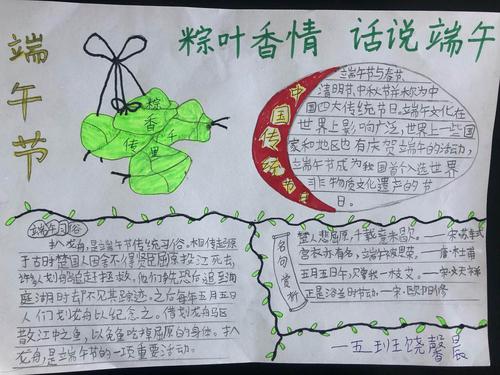 粽叶香情 话说端午
端午节
粽香
传千里
中国传统节日
端午节与春节、
清明节、中秋节并称为中
国四大传统节日。端午文化在
世界上影响广泛,世界上一些国
家和地区也有庆贺端午的活动,
端午节成为我国首个入选世界
非物质文化遗产的节
日。
端午习俗
扒龙舟,是端午节传统习俗。相传起源
于古时楚国人因舍不得贤臣屈原投江死去,
许多人划船追赶拯救。他们争先恐后追至洞
庭湖时却不见其踪迹。之后每年五月五日
人们划龙舟以纪念之。借划龙舟驱
散江中之鱼,以免鱼吃掉屈原的身体。扒
龙舟,是端午节的一项重要活动。
名句赏析
楚人悲屈原,千载意未歇。——宋·苏轼
宫衣亦有名,端午被恩荣。——唐·杜甫
五月五日午,只赠我一枝艾。——宋·文天祥
正是浴兰时节动。——宋·欧阳修
一五班饶馨晨